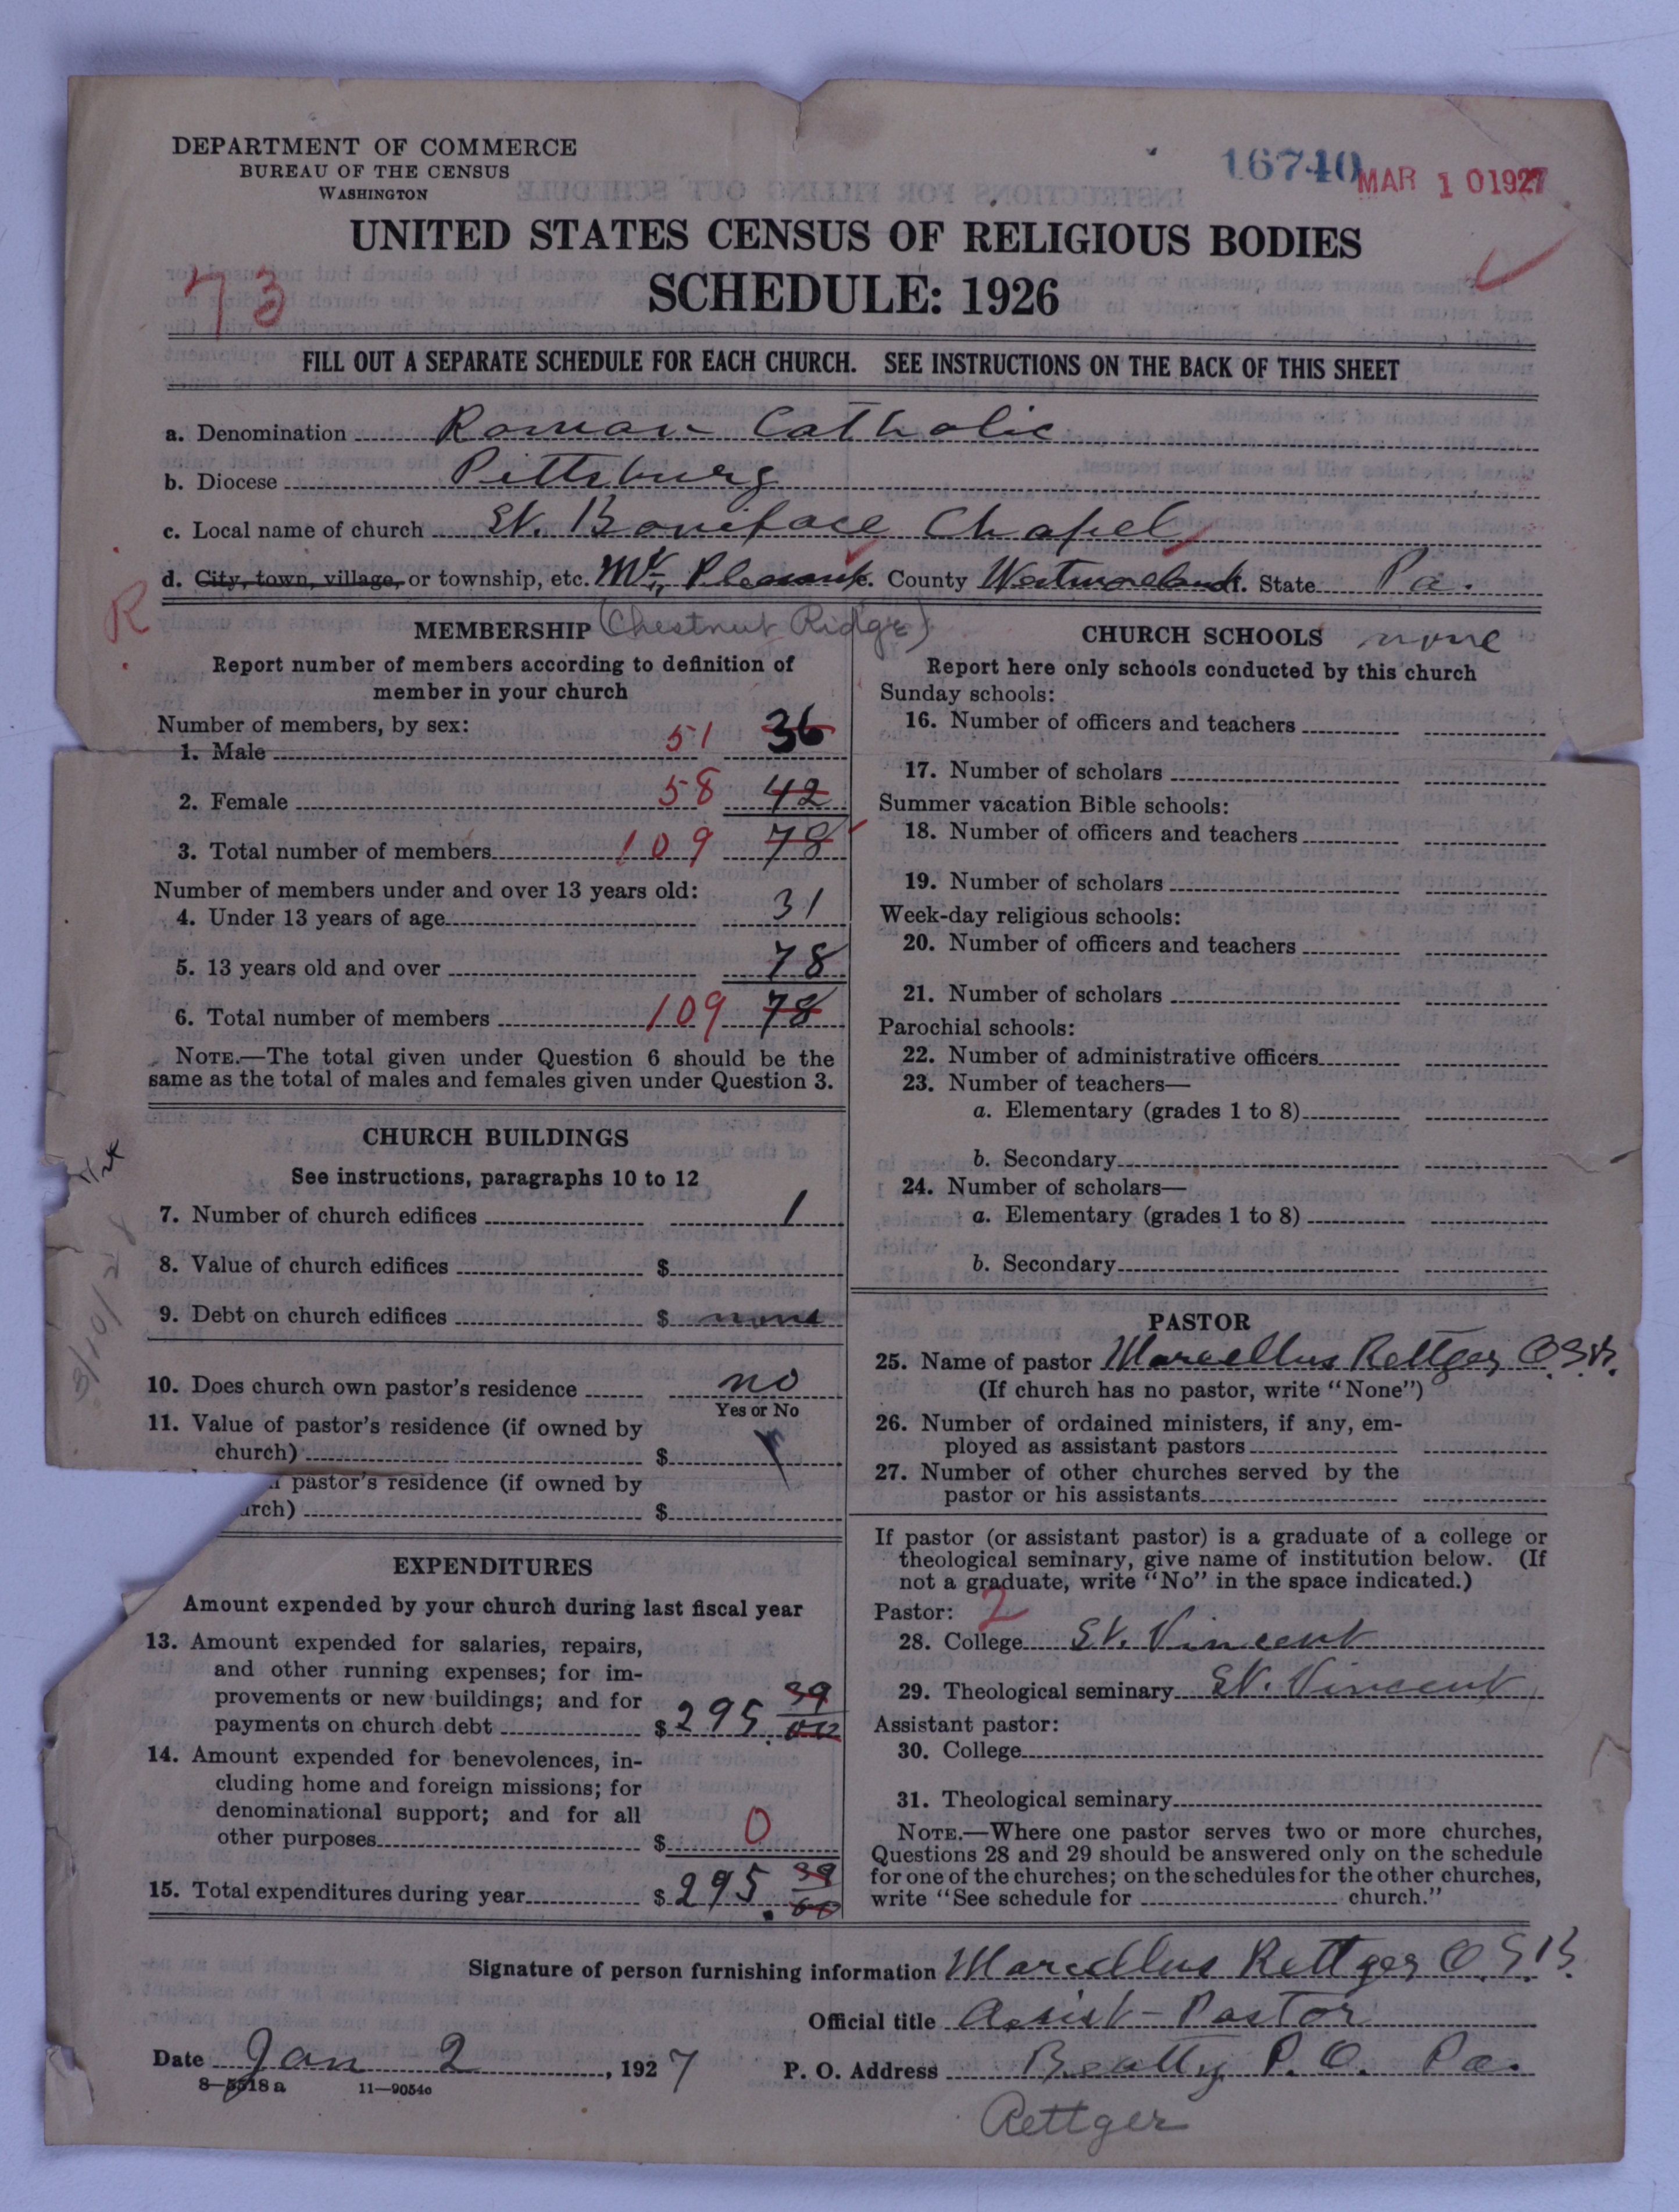 DEPARTMENT OF COMMERCE
BUREAU OF THE CENSUS
WASHINGTON
16740
MAR 10 1927
UNITED STATES CENSUS OF RELIGIOUS BODIES
SCHEDULE: 1926
73
FILL OUT A SEPARATE SCHEDULE FOR EACH CHURCH. SEE INSTRUCTIONS ON THE BACK OF THIS SHEET
a. Denomination Roman Catholic
b. Diocese Pittsburg
c. Local name of church St. Boniface Chapel
d. City, town, village, or township, etc. Mt. Pleasant. County Westmoreland. State Pa.
R
MEMBERSHIP (Chestnut Ridge)
Report number of members according to definition of
member in your church
Number of members, by sex:
1. Male 51 36
2. Female 58 42
3. Total number of members 109 78
Number of members under and over 13 years old:
4. Under 13 years of age 31
5. 13 years old and over 78
6. Total number of members 109 78
NOTE.—The total given under Question 6 should be the
same as the total of males and females given under Question 3.
CHURCH BUILDINGS
See instructions, paragraphs 10 to 12
7. Number of church edifices 1
8. Value of church edifices $
9. Debt on church edifices $ none
10. Does church own pastor's residence no
Yes or No
11. Value of pastor's residence (if owned by
church) $
pastor's residence (if owned by
urch) $
3/10/28
EXPENDITURES
Amount expended by your church during last fiscal year
13. Amount expended for salaries, repairs,
and other running expenses; for im-
provements or new buildings; and for
payments on church debt $ 295. 39
14. Amount expended for benevolences, in-
cluding home and foreign missions; for
denominational support; and for all
other purposes $ 0
15. Total expenditures during year $ 295. 39
CHURCH SCHOOLS none
Report here only schools conducted by this church
Sunday schools:
16. Number of officers and teachers
17. Number of scholars
Summer vacation Bible schools:
18. Number of officers and teachers
19. Number of scholars
Week-day religious schools:
20. Number of officers and teachers
21. Number of scholars
Parochial schools:
22. Number of administrative officers
23. Number of teachers—
a. Elementary (grades 1 to 8)
b. Secondary
24. Number of scholars—
a. Elementary (grades 1 to 8)
b. Secondary
PASTOR
25. Name of pastor Marcellus Rettger O.S.B.
(If church has no pastor, write "None")
26. Number of ordained ministers, if any, em-
ployed as assistant pastors
27. Number of other churches served by the
pastor or his assistants
If pastor (or assistant pastor) is a graduate of a college or
theological seminary, give name of institution below. (If
not a graduate, write "No" in the space indicated.)
Pastor: 2
28. College St. Vincent
29. Theological seminary St. Vincent
Assistant pastor:
30. College
31. Theological seminary
NOTE.—Where one pastor serves two or more churches,
Questions 28 and 29 should be answered only on the schedule
for one of the churches; on the schedules for the other churches,
write "See schedule for church."
Signature of person furnishing information Marcellus Rettger O.S.B.
Official title Assist-Pastor
Date Jan 2, 1927
P. O. Address Beatty P.O. Pa.
8—5518a 11—9054c
Rettger